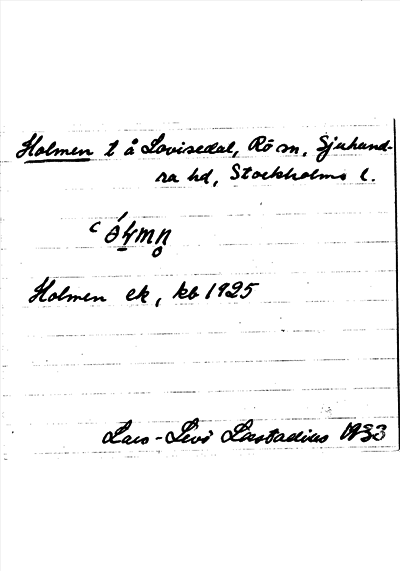 Holmen t å Lovisedal, Rö sn, Sjuhund-
ra hd, Stockholms l.
Holmen ek, kb 1925
Lars-Levi Læstadius 1933